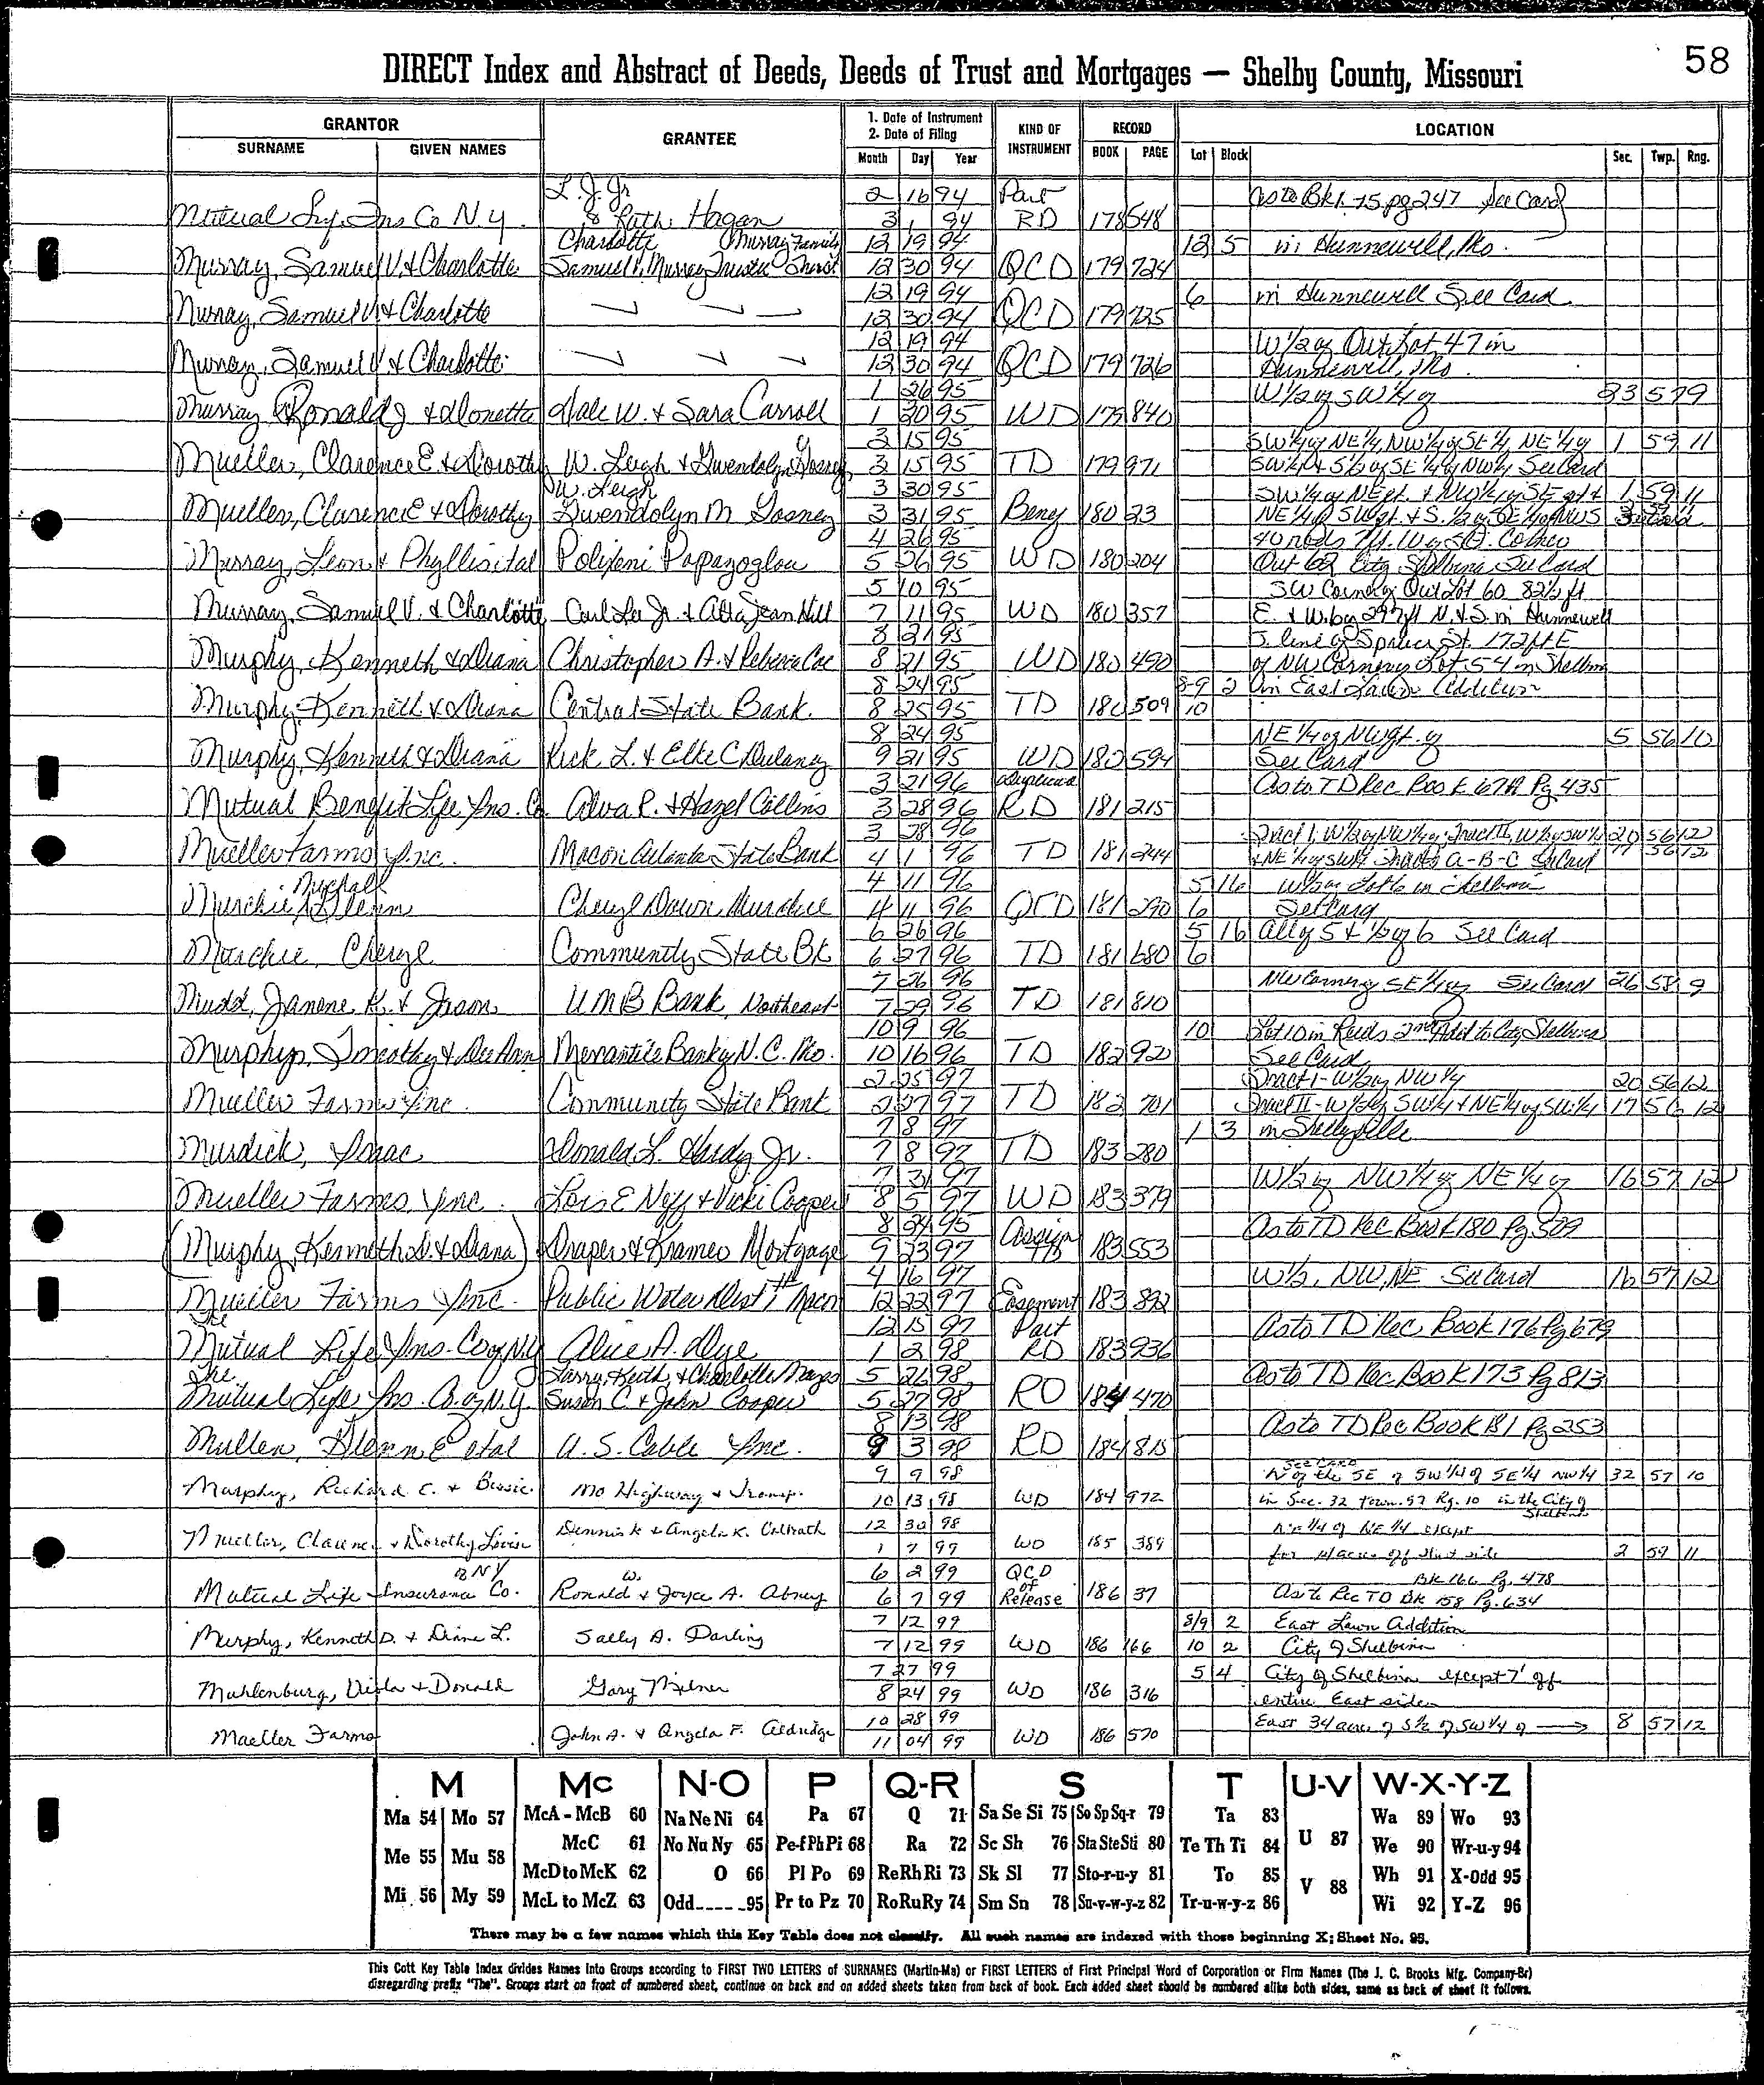 58
DIRECT Index and Abstract of Deeds, Deeds of Trust and Mortgages — Shelby County, Missouri
GRANTOR GRANTEE 1. Date of Instrument 2. Date of Filing KIND OF INSTRUMENT RECORD LOCATION
SURNAME GIVEN NAMES Month Day Year BOOK PAGE Lot Block Sec. Twp. Rng.
L. J. Jr 2 16 94 Part
Mutual Ins Co N.Y. & Ruth Hagan 3 1 94 RD 178 548 See Card
Charlotte Murray Family 12 19 94 12 5 in Hunnewell, Mo.
Murray, Samuel V. & Charlotte Samuel V. Murray Trustee Trust 12 30 94 QCD 179 724
12 19 94 6 in Hunnewell See Card
Murray, Samuel V. & Charlotte 12 30 94 QCD 179 725
12 19 94 W 1/2 of Out Lot 47 in
Murray, Samuel V & Charlotte 12 30 94 QCD 179 726 Hunnewell, Mo.
1 26 95 W 1/2 of SW 1/4 of 33 57 9
Murray Ronald J & Donetta Dale W. & Sara Carroll 1 30 95 WD 179 840
3 15 95 SW 1/4 of NE 1/4, NW 1/4 of SE 1/4, NE 1/4 of 1 59 11
Mueller, Clarence E & Dorothy W. Leigh & Gwendolyn Gosney 3 15 95 TD 179 971 SW 1/4 & S 1/2 of SE 1/4 of NW 1/4 See Card
W. Leigh 3 30 95 1 59 11
Mueller, Clarence E & Dorothy Gwendolyn M Gosney 3 31 95 Benef 180 23
4 26 95
Murray, Leon & Phyllis etal Polixeni Papazoglou 5 26 95 WD 180 204 Out 62 City Shelbina See Card
5 10 95 SW Corner of Out Lot 60 82 1/2 ft
Murray, Samuel V. & Charlotte Carl Lee Jr. & Alta Jean Hill 7 11 95 WD 180 357 E. & W. by 297 ft N. & S. in Hunnewell
8 21 95 172 ft E
Murphy, Kenneth & Diana Christopher A. & Rebecca Coe 8 21 95 WD 180 490 of NW Corner of Lot 54 in Shelbina
8 24 95 8-9 2 in East Lawn Addition
Murphy, Kenneth & Diana Central State Bank. 8 25 95 TD 180 509 10
8 24 95 NE 1/4 of NW 1/4 of 5 56 10
Murphy, Kenneth & Diana Rick L. & Elke C Dulaney 9 21 95 WD 180 594 See Card
3 21 96 As to TD Rec Book 67A Pg 435
Mutual Benefit Life Ins. Co. Alva R. & Hazel Collins 3 28 96 RD 181 215
3 28 96 Tract I, W 1/2 of NW 1/4, Tract II, W 1/2 of SW 1/4 20 56 12
Mueller Farms Inc. Macon Atlanta State Bank 4 1 96 TD 181 244 & NE 1/4 of SW 1/4 Tracts A-B-C See Card 17 56 12
4 11 96 5 16 W 1/2 of Lot 6 in Shelbina
Murchie, Glenn Cheryl Dawn Murchie 4 11 96 QCD 181 290 6 See Card
6 26 96 5 16 All of 5 & 1/2 of 6 See Card
Murchie, Cheryl Community State Bk 6 27 96 TD 181 680 6
7 26 96 NW Corner of SE 1/4 of See Card 26 58 9
Mudd, Janene K. & Jason UMB Bank, Northeast 7 29 96 TD 181 810
10 9 96 10 Lot 10 in Reeds 2nd Add to City Shelbina
Murphy, Timothy & DeeAnn Mercantile Bank of N.C. Mo. 10 16 96 TD 182 92 See Card
2 25 97 Tract I - W 1/2 of NW 1/4 20 56 12
Mueller Farms Inc. Community State Bank 2 27 97 TD 182 701 Tract II - W 1/2 of SW 1/4 & NE 1/4 of SW 1/4 17 56 12
7 8 97 1 3 in Shelbyville
Murdick, Isaac Donald L. Hardy Jr. 7 8 97 TD 183 280
7 31 97 W 1/2 of NW 1/4 of NE 1/4 of 16 57 12
Mueller Farms, Inc. Lois E Neff & Vicki Cooper 8 5 97 WD 183 379
8 24 95 Assign As to TD Rec Book 180 Pg 509
(Murphy, Kenneth D. & Diana) Draper & Kramer Mortgage 9 23 97 TD 183 553
4 16 97 W 1/2, NW, NE See Card 16 57 12
Mueller Farms Inc. Public Water Dist 1 Macon 12 22 97 Easement 183 892
The 12 15 97 Part As to TD Rec Book 176 Pg 679
Mutual Life Ins. Co of NY Alice A. Dye 1 2 98 RD 183 936
The Larry, Keith, & Charlotte Mayes 5 26 98 As to TD Rec Book 173 Pg 813
Mutual Life Ins. Co. of N.Y. Susan C & John Cooper 5 27 98 RD 184 470
8 13 98 As to TD Rec Book 181 Pg 253
Mullen, Glenn E etal U.S. Cable Inc. 9 3 98 RD 184 815
See Card
9 9 98 N of the SE of SW 1/4 of SE 1/4 NW 1/4 32 57 10
Murphy, Richard C. & Bessie Mo Highway & Transp. 10 13 98 WD 184 972 in Sec. 32 Town. 57 Rg. 10 in the City of Shelbina
Dennis K & Angela K. Coltrath 12 30 98 NE 1/4 of NE 1/4 except
Mueller, Clarence & Dorothy Louise 1 7 99 WD 185 389 2 59 11
of NY W. 6 2 99 QCD of Bk 166 Pg. 478
Mutual Life Insurance Co. Ronald & Joyce A. Abney 6 7 99 Release 186 37 As to Rec TD Bk 158 Pg. 634
7 12 99 8/9 2 East Lawn Addition
Murphy, Kenneth D. & Diane L. Sally A. Darling 7 12 99 WD 186 166 10 2 City of Shelbina
7 27 99 5 4 City of Shelbina except 7' off
Muhlenburg, Viola & Donald Gary Milner 8 24 99 WD 186 316 entire East side
10 28 99 East 34 acres of S 1/2 of SW 1/4 of → 8 57 12
Mueller Farms John A. & Angela F. Aldridge 11 04 99 WD 186 570
M Mc N-O P Q-R S T U-V W-X-Y-Z
Ma 54 Mo 57 McA - McB 60 Na Ne Ni 64 Pa 67 Q 71 Sa Se Si 75 So Sp Sq-r 79 Ta 83 Wa 89 Wo 93
McC 61 No Nu Ny 65 Pe-f Ph Pi 68 Ra 72 Sc Sh 76 Sta Ste Sti 80 Te Th Ti 84 U 87 We 90 Wr-u-y 94
Me 55 Mu 58 McD to McK 62 O 66 Pl Po 69 Re Rh Ri 73 Sk Sl 77 Sto-r-u-y 81 To 85 V 88 Wh 91 X-Odd 95
Mi 56 My 59 McL to McZ 63 Odd 95 Pr to Pz 70 Ro Ru Ry 74 Sm Sn 78 Su-v-w-y-z 82 Tr-u-w-y-z 86 Wi 92 Y-Z 96
There may be a few names which this Key Table does not classify. All such names are indexed with those beginning X; Sheet No. 95.
This Cott Key Table Index divides Names into Groups according to FIRST TWO LETTERS of SURNAMES (Martin-Ma) or FIRST LETTERS of First Principal Word of Corporation or Firm Names (The J. C. Brooks Mfg. Company-Br)
disregarding prefix "The". Groups start on front of numbered sheet, continue on back and on added sheets taken from back of book. Each added sheet should be numbered alike both sides, same as back of sheet it follows.